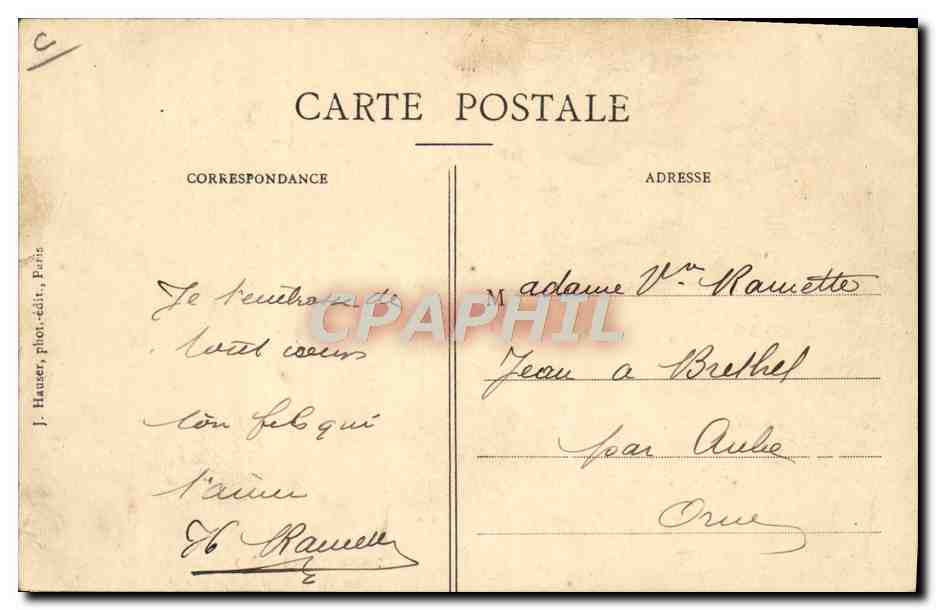 CARTE POSTALE
CORRESPONDANCE
ADRESSE
J. Hauser, phot.-édit., Paris
Je t'embrasse de
tout cœur
ton fils qui
t'aime
H Ramette
Madame Vve Ramette
Jean a Brethel
par Aube
Orne
CPAPHIL